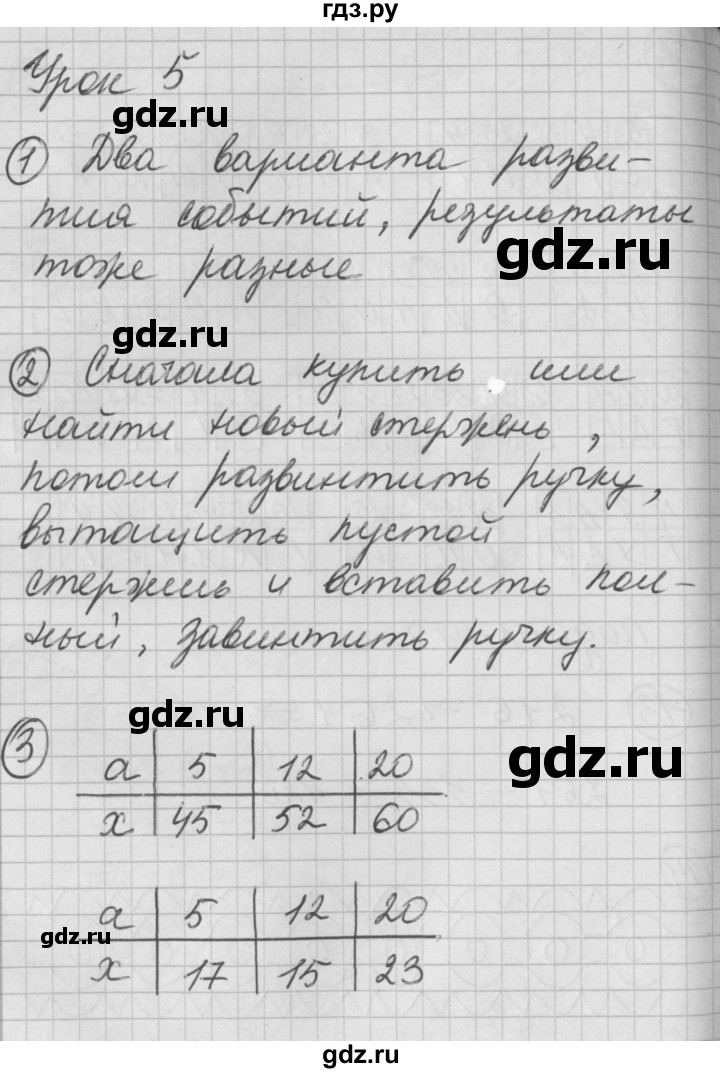 гдз.ру
Урок 5
gdz.ru
① Два варианта разви-
тия событий, результаты
gdz.ru
тоже разные
gdz.ru
② Сначала купить или
найти новый стержень,
потом развинтить ручку,
вытащить пустой
стержень и вставить пол-
ный, завинтить ручку.
gdz.ru
③
gdz.ru
a | 5 | 12 | 20
x | 45 | 52 | 60
a | 5 | 12 | 20
gdz.ru
x | 17 | 15 | 23
gdz.ru